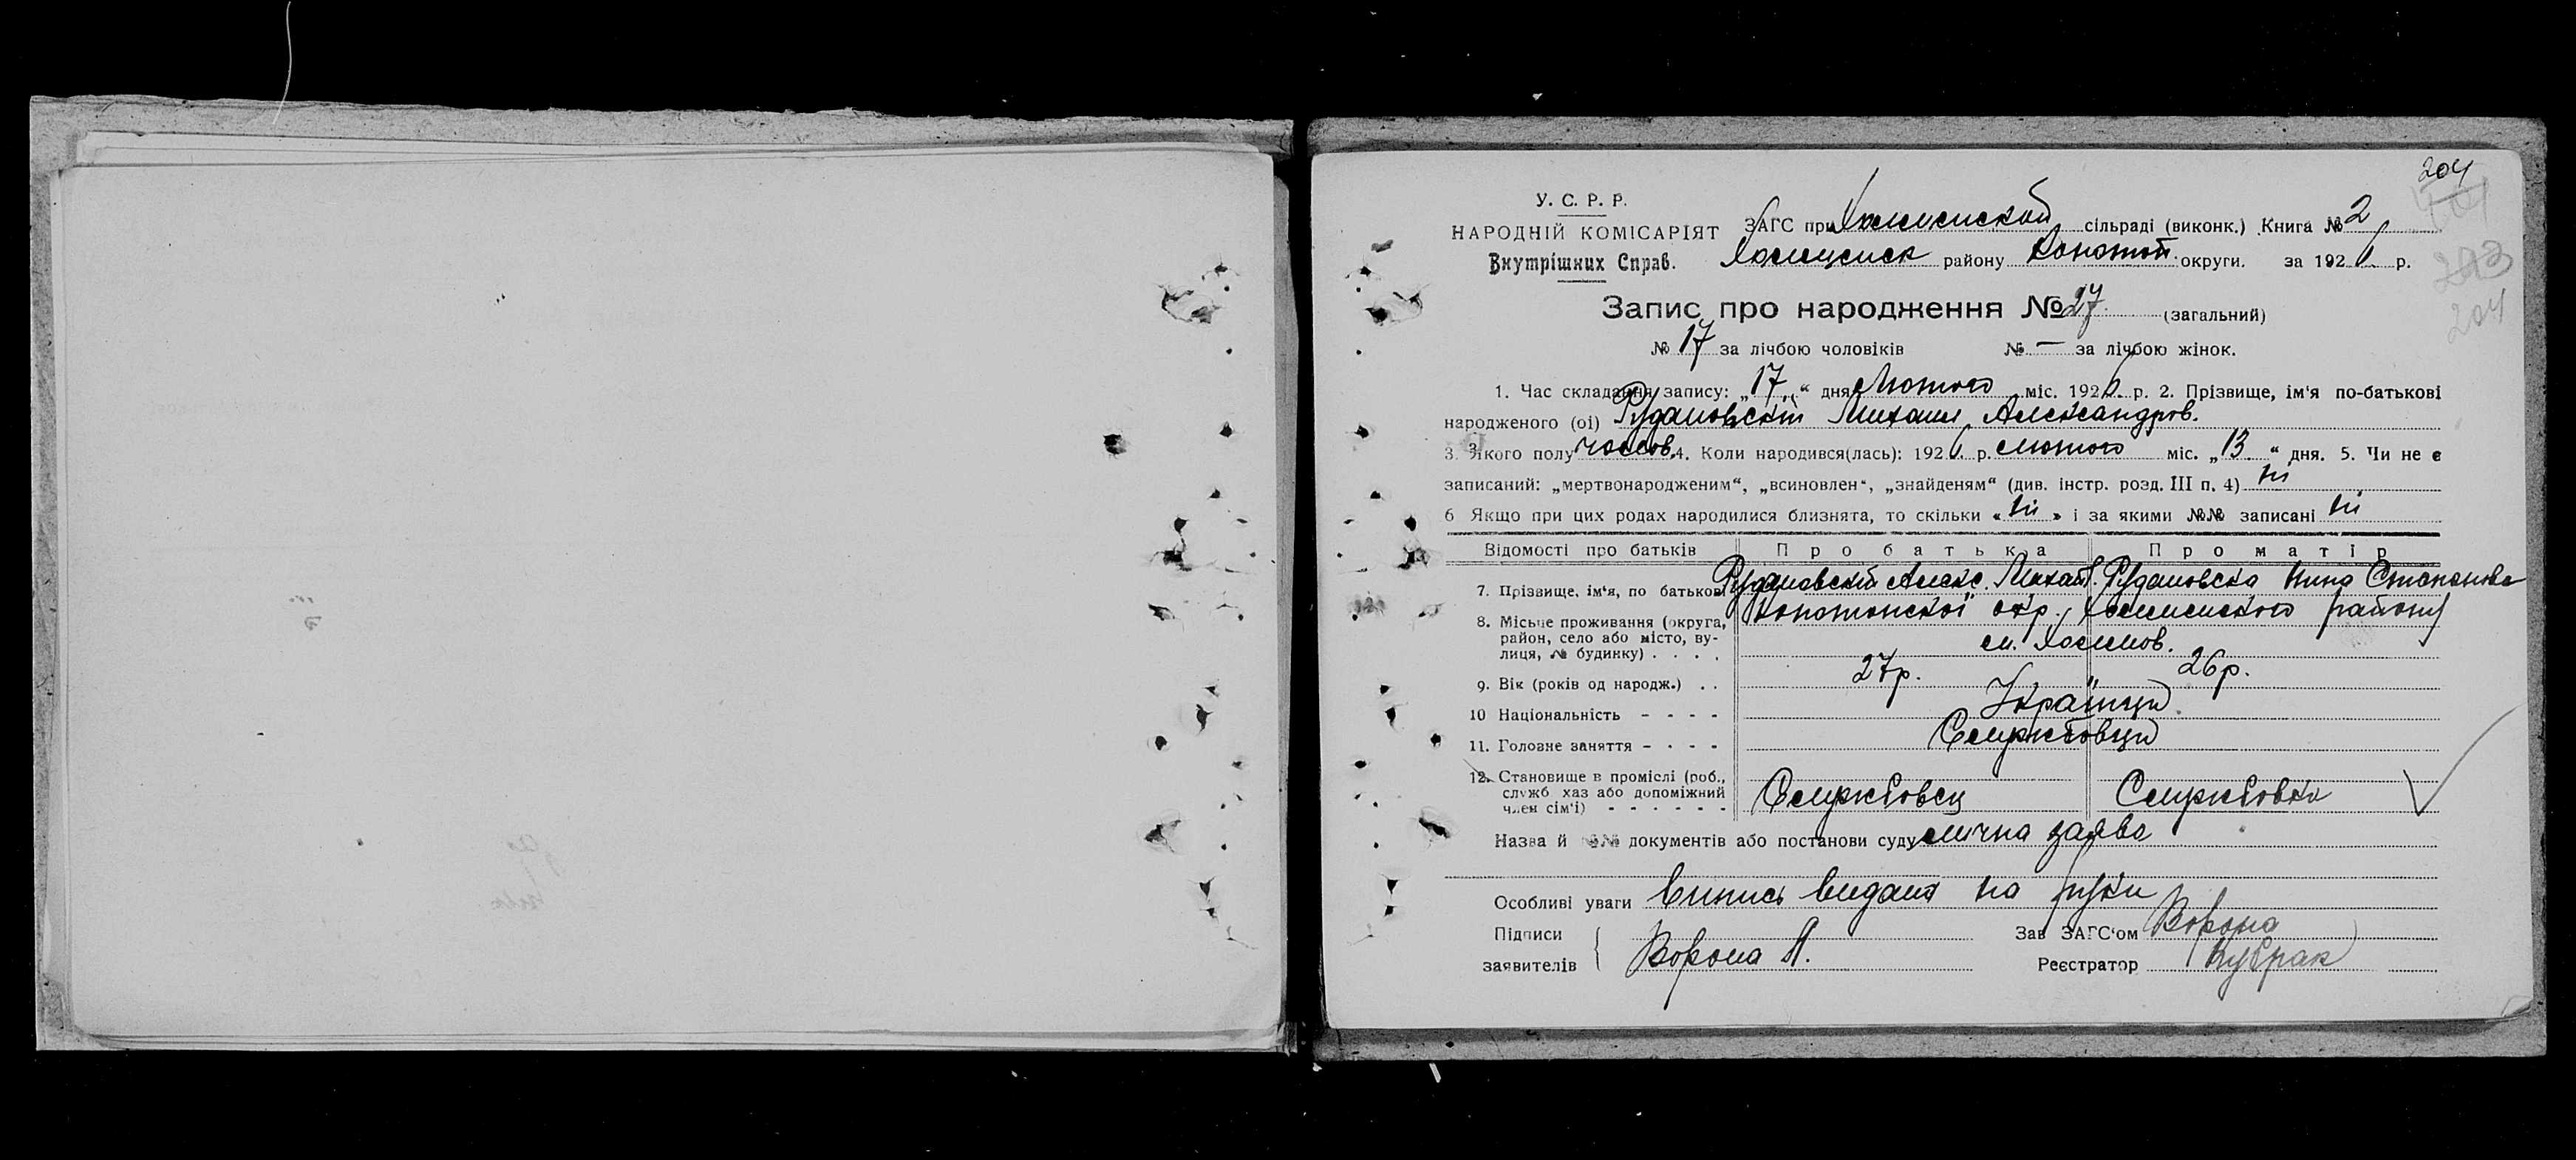 204
У. С. Р. Р.
НАРОДНІЙ КОМІСАРІЯТ
Внутрішних Справ.
ЗАГС при сільраді (виконк.) Книга № 2
району Конотоп. округи. за 1926 р.
203
204
Запис про народження № 27 (загальний)
№ 17 за лічбою чоловіків № — за лічбою жінок.
1. Час складання запису: „17“ дня Лютого міс. 1926 р. 2. Прізвище, ім'я по-батькові
народженого (ої) Рудановскій Михаил Александров.
3. Якого полу чолов. 4. Коли народився(лась): 1926 р. лютого міс. „13“ дня. 5. Чи не є
записаний: „мертвонародженим“, „всиновлен“, „знайденям“ (див. інстр. розд. III п. 4) ні
6 Якщо при цих родах народилися близнята, то скільки «ні» і за якими №№ записані ні
Відомості про батьків Про батька Про матір
7. Прізвище, ім'я, по батькові Рудановскій Алекс. Михайл. Рудановска Нина Степановна
8. Місьце проживання (округа, район, село або місто, вулиця, № будинку) . . . . Конотопської окр., району
см.
9. Вік (років од народж.) . . 27р. 26р.
10 Національність - - - - Українци
11. Головне заняття - - - - Службовци
12. Становище в промислі (роб., служб хаз або допоміжний член сім'ї) - - - - - - Службовец Службовка
Назва й №№ документів або постанови суду лична заява
Особливі уваги Випись видана на руки
Підписи
заявителів Ворона А.
Зав ЗАГС'ом Ворона
Реєстратор Кубрак